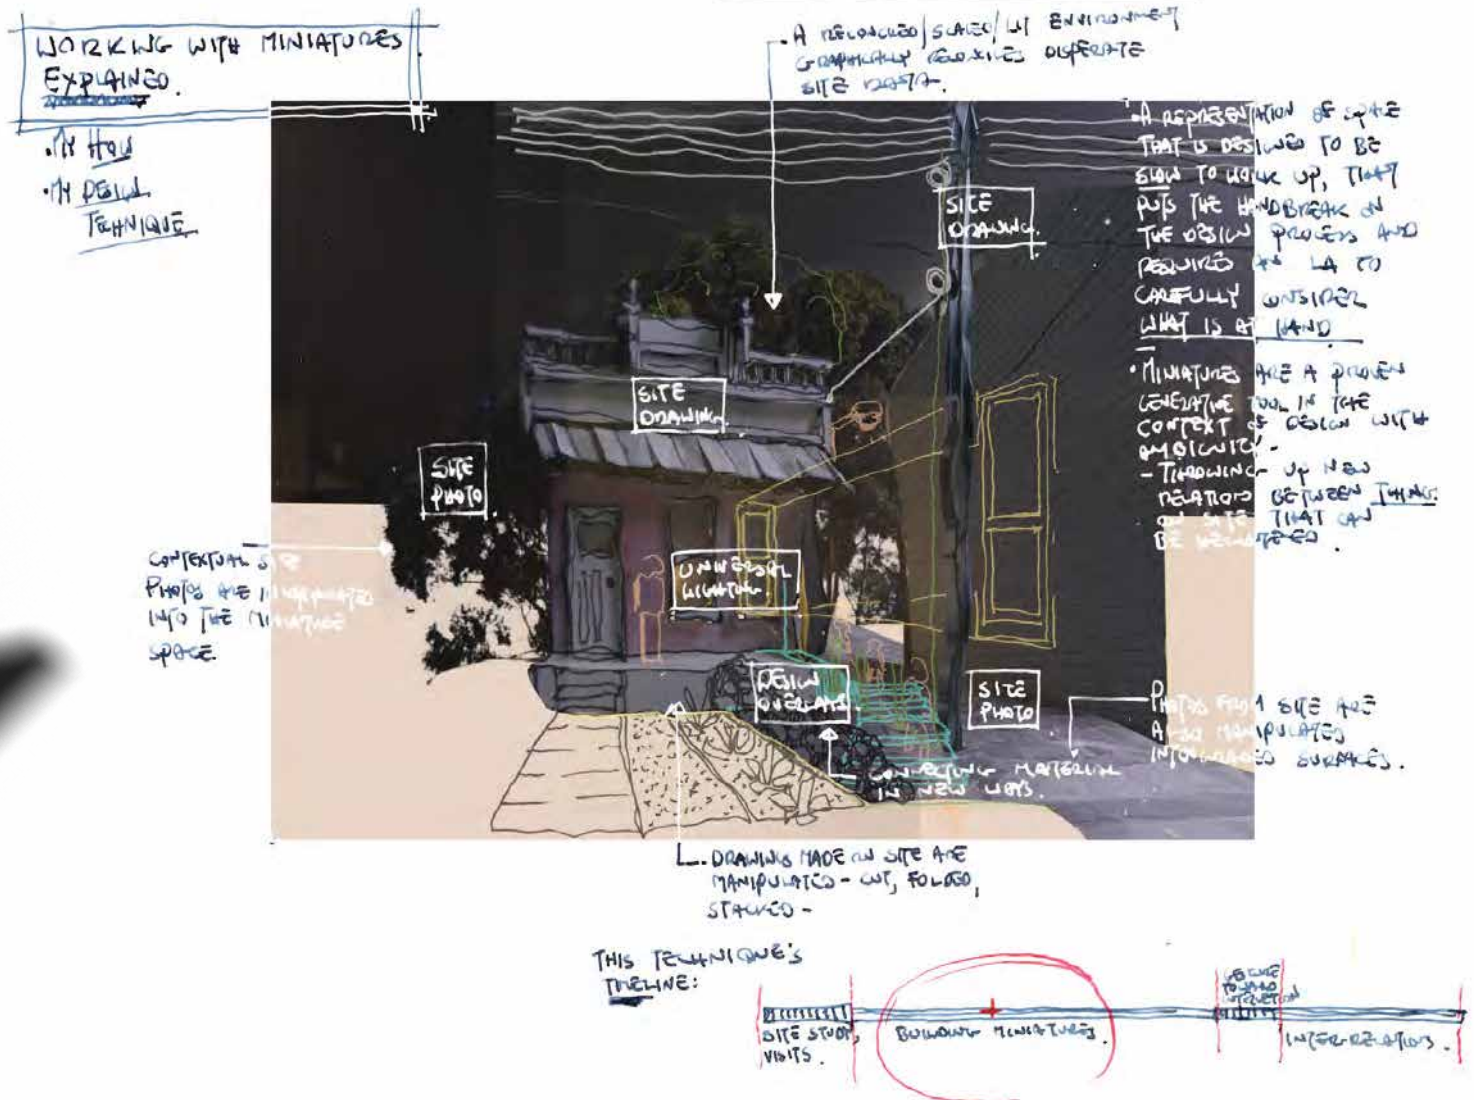 WORKING WITH MINIATURES
EXPLAINED.
• MY HOW
• MY DESIGN
TECHNIQUE
• A RELOCATED/SCALED/LIT ENVIRONMENT
GRAPHICALLY RECONCILES DISPERATE
SITE DATA.
• A REPRESENTATION OF SPACE
THAT IS DESIGNED TO BE
SLOW TO WORK UP, THAT
PUTS THE HANDBREAK ON
THE DESIGN PROCESS AND
REQUIRES AN LA TO
CAREFULLY CONSIDER
WHAT IS AT HAND
• MINIATURES ARE A PROVEN
GENERATIVE TOOL IN THE
CONTEXT OF DESIGN WITH
AMBIGUITY -
- THROWING UP NEW
RELATIONS BETWEEN THINGS
ON SITE THAT CAN
BE
SITE
DRAWING.
SITE
DRAWING.
SITE
PHOTO
UNIVERSAL
LIGHTING.
CONTEXTUAL SITE
PHOTOS ARE INCORPORATED
INTO THE MINIATURE
SPACE.
DESIGN
OVERLAYS.
SITE
PHOTO
PHOTOS FROM SITE ARE
ALSO MANIPULATED
INTO SURFACES.
CONNECTING MATERIAL
IN NEW WAYS.
DRAWINGS MADE ON SITE ARE
MANIPULATED - CUT, FOLDED,
STACKED -
THIS TECHNIQUE'S
TIMELINE:
SITE STUDY,
VISITS.
BUILDING MINIATURES.
GESTURE
TOWARD
INTERVENTION
INTER-RELATIONS.